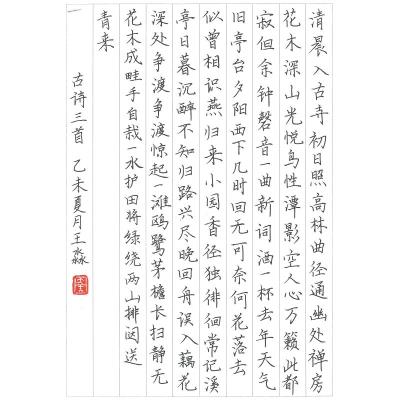 清晨入古寺初日照高林曲径通幽处禅房
花木深山光悦鸟性潭影空人心万籁此都
寂但余钟磬音一曲新词酒一杯去年天气
旧亭台夕阳西下几时回无可奈何花落去
似曾相识燕归来小园香径独徘徊常记溪
亭日暮沉醉不知归路兴尽晚回舟误入藕花
深处争渡争渡惊起一滩鸥鹭茅檐长扫静无
花木成畦手自栽一水护田将绿绕两山排闼送
青来
古诗三首 乙未夏月王淼